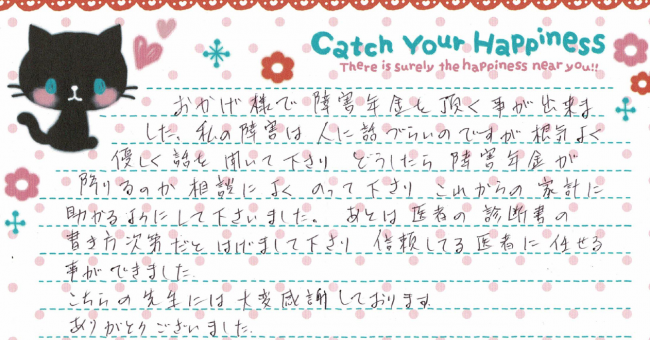 Catch Your Happiness
There is surely the happiness near you!!
おかげ様で 障害年金を 頂く 事が 出来ま
した、私の障害は 人に 話づらいのですが 根気よく
優しく 話を 聞いて下さり どうしたら 障害年金が
降りるのか 相談に よく のって下さり これからの 家計に
助かるようにして下さいました。 あとは 医者の 診断書の
書き方次第だと はげまして下さり 信頼してる 医者に 任せる
事ができました
こちらの先生には 大変感謝しております
ありがとうございました.